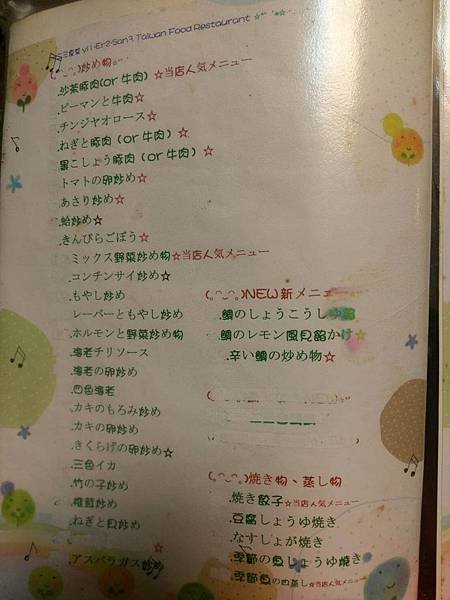 一二三食堂 yi1-Er2-San3 Taiwan Food Restaurant ☆*¨ *※☆
(｡◠‿◠｡)炒め物☆
.沙茶豚肉(or 牛肉) ☆当店人気メニュー
.ピーマンと牛肉☆
.チンジャオロース☆
.ねぎと豚肉 (or 牛肉) ☆
.黒こしょう豚肉 (or 牛肉) ☆
.トマトの卵炒め☆
.あさり炒め☆
.蛤炒め☆
.きんぴらごぼう☆
.ミックス野菜炒め物☆当店人気メニュー
.コンチンサイ炒め☆
.もやし炒め
.レーバーともやし炒め
.ホルモンと野菜炒め物
.海老チリソース
.海老の卵炒め
.四色海老
.カキのもろみ炒め
.カキの卵炒め
.きくらげの卵炒め☆
.三色イカ
.竹の子炒め
.椎茸炒め
.ねぎと貝炒め
.アスパラガス炒め
(｡◠‿◠｡)NEW新メニュー
.鯛のしょうこうし
.鯛のレモン風貝餡かけ☆
.辛い鯛の炒め物☆
(｡◠‿◠｡)焼き物、蒸し物
.焼き餃子☆当店人気メニュー
.豆腐しょうゆ焼き
.なすしょが焼き
.季節の魚しょうゆ焼き
.季節魚の四蒸し☆当店人気メニュー